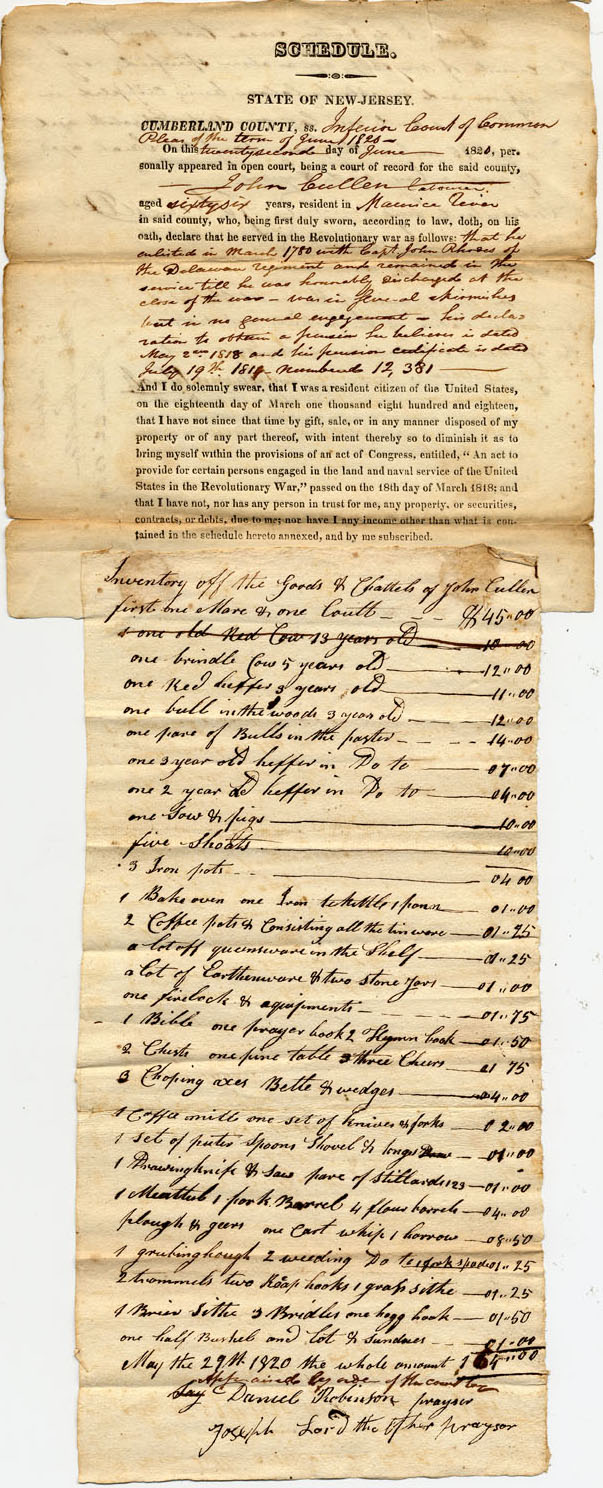 SCHEDULE.
STATE OF NEW-JERSEY.
CUMBERLAND COUNTY, ss. Inferior Court of Common
Pleas of the term of June 1820 —
On this twenty second day of June 1820, per-
sonally appeared in open court, being a court of record for the said county,
John Cullen Labourer.
aged sixty six years, resident in Maurice River
in said county, who, being first duly sworn, according to law, doth, on his
oath, declare that he served in the Revolutionary war as follows: that he
enlisted in March 1780 with Capt. John Rhodes of
the Delaware regiment and remained in the
service till he was honorably discharged at the
close of the war — was in several skirmishes
but in no general engagement — his decla-
ration to obtain a pension he believes is dated
May 2nd 1818 and his pension certificate is dated
July 19th 1819 — numbered 12,381
And I do solemnly swear, that I was a resident citizen of the United States,
on the eighteenth day of March one thousand eight hundred and eighteen,
that I have not since that time by gift, sale, or in any manner disposed of my
property or of any part thereof, with intent thereby so to diminish it as to
bring myself within the provisions of an act of Congress, entitled, “ An act to
provide for certain persons engaged in the land and naval service of the United
States in the Revolutionary War,” passed on the 18th day of March 1818; and
that I have not, nor has any person in trust for me, any property, or securities,
contracts, or debts, due to me; nor have I any income other than what is con-
tained in the schedule hereto annexed, and by me subscribed.
Inventory off the Goods & Chattels of John Cullen
first one Mare & one Coult — $45"00
one old Red Cow 13 years old 10 00
one brindle Cow 5 years old 12"00
one Red heffer 3 years old 11"00
one bull in the woods 3 year old 12"00
one pare of Bulls in the paster 14"00
one 3 year old heffer in Do to 07"00
one 2 year old heffer in Do to 04"00
one Sow & pigs 10"00
five Shoats 10"00
3 Iron pots 04 00
1 Bake oven one Iron tekittle 1 pann 01"00
2 Coffee pots & Consisting all the tin ware 01"25
a lot off queensware in the Shelf 01"25
a lot of Earthenware & two stone Jars 01"00
one firelock & equipments 01"75
1 Bible one prayer book 2 Hymn book 01"50
2 Chests one pine table 3 three Cheirs 01 75
3 Choping axes Bette & wedges 04"00
1 Coffee mill one set of knives & forks 02"00
1 set of puter spoons Shovel & tongs 01"00
1 Drawing knife & Saw pare of Stillards 01"00
1 Meattub 1 pork Barrel 4 flour barrels 04"00
plough & geers one Cart whip 1 harrow 08"50
1 grubing hough 2 weeding Do 1 fork spade 01"25
2 trammels two Reap hooks 1 grass sithe 01"25
1 Brier Sithe 3 Bridles one hogg hook 01"50
one half Bushel and lot & sundres 01"00
May the 29th 1820 the whole amount
Appraised by order of the court
Say Daniel Robinson prayser
Joseph Lord the other praysor